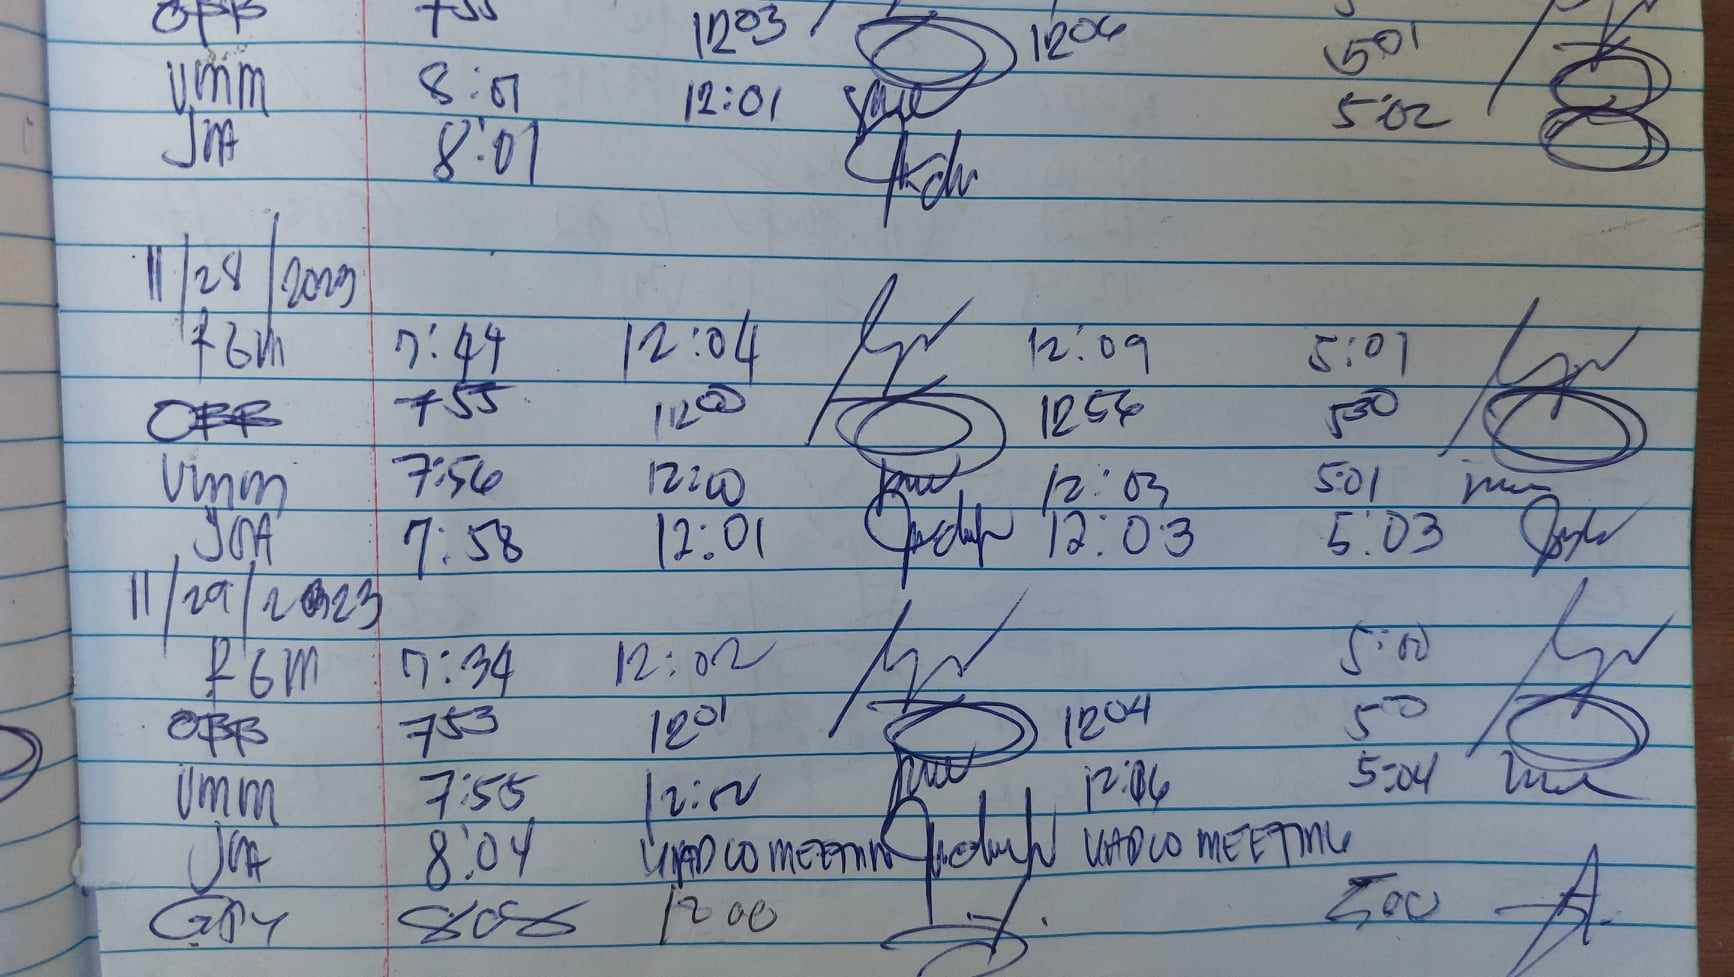 OBB 755 1203 1206 501
VMM 8:01 12:01 5:02
JVA 8:01
11/28/2023
RGM 7:44 12:04 12:09 5:01
OBB 755 1200 1256 500
VMM 7:56 12:00 12:03 501
JVA 7:58 12:01 12:03 5:03
11/29/2023
RGM 7:34 12:02 5:00
OBB 753 1201 1204 500
VMM 7:55 12:02 12:06 5:04
JVA 8:04 VADCO MEETING VADCO MEETING
808 1200 500